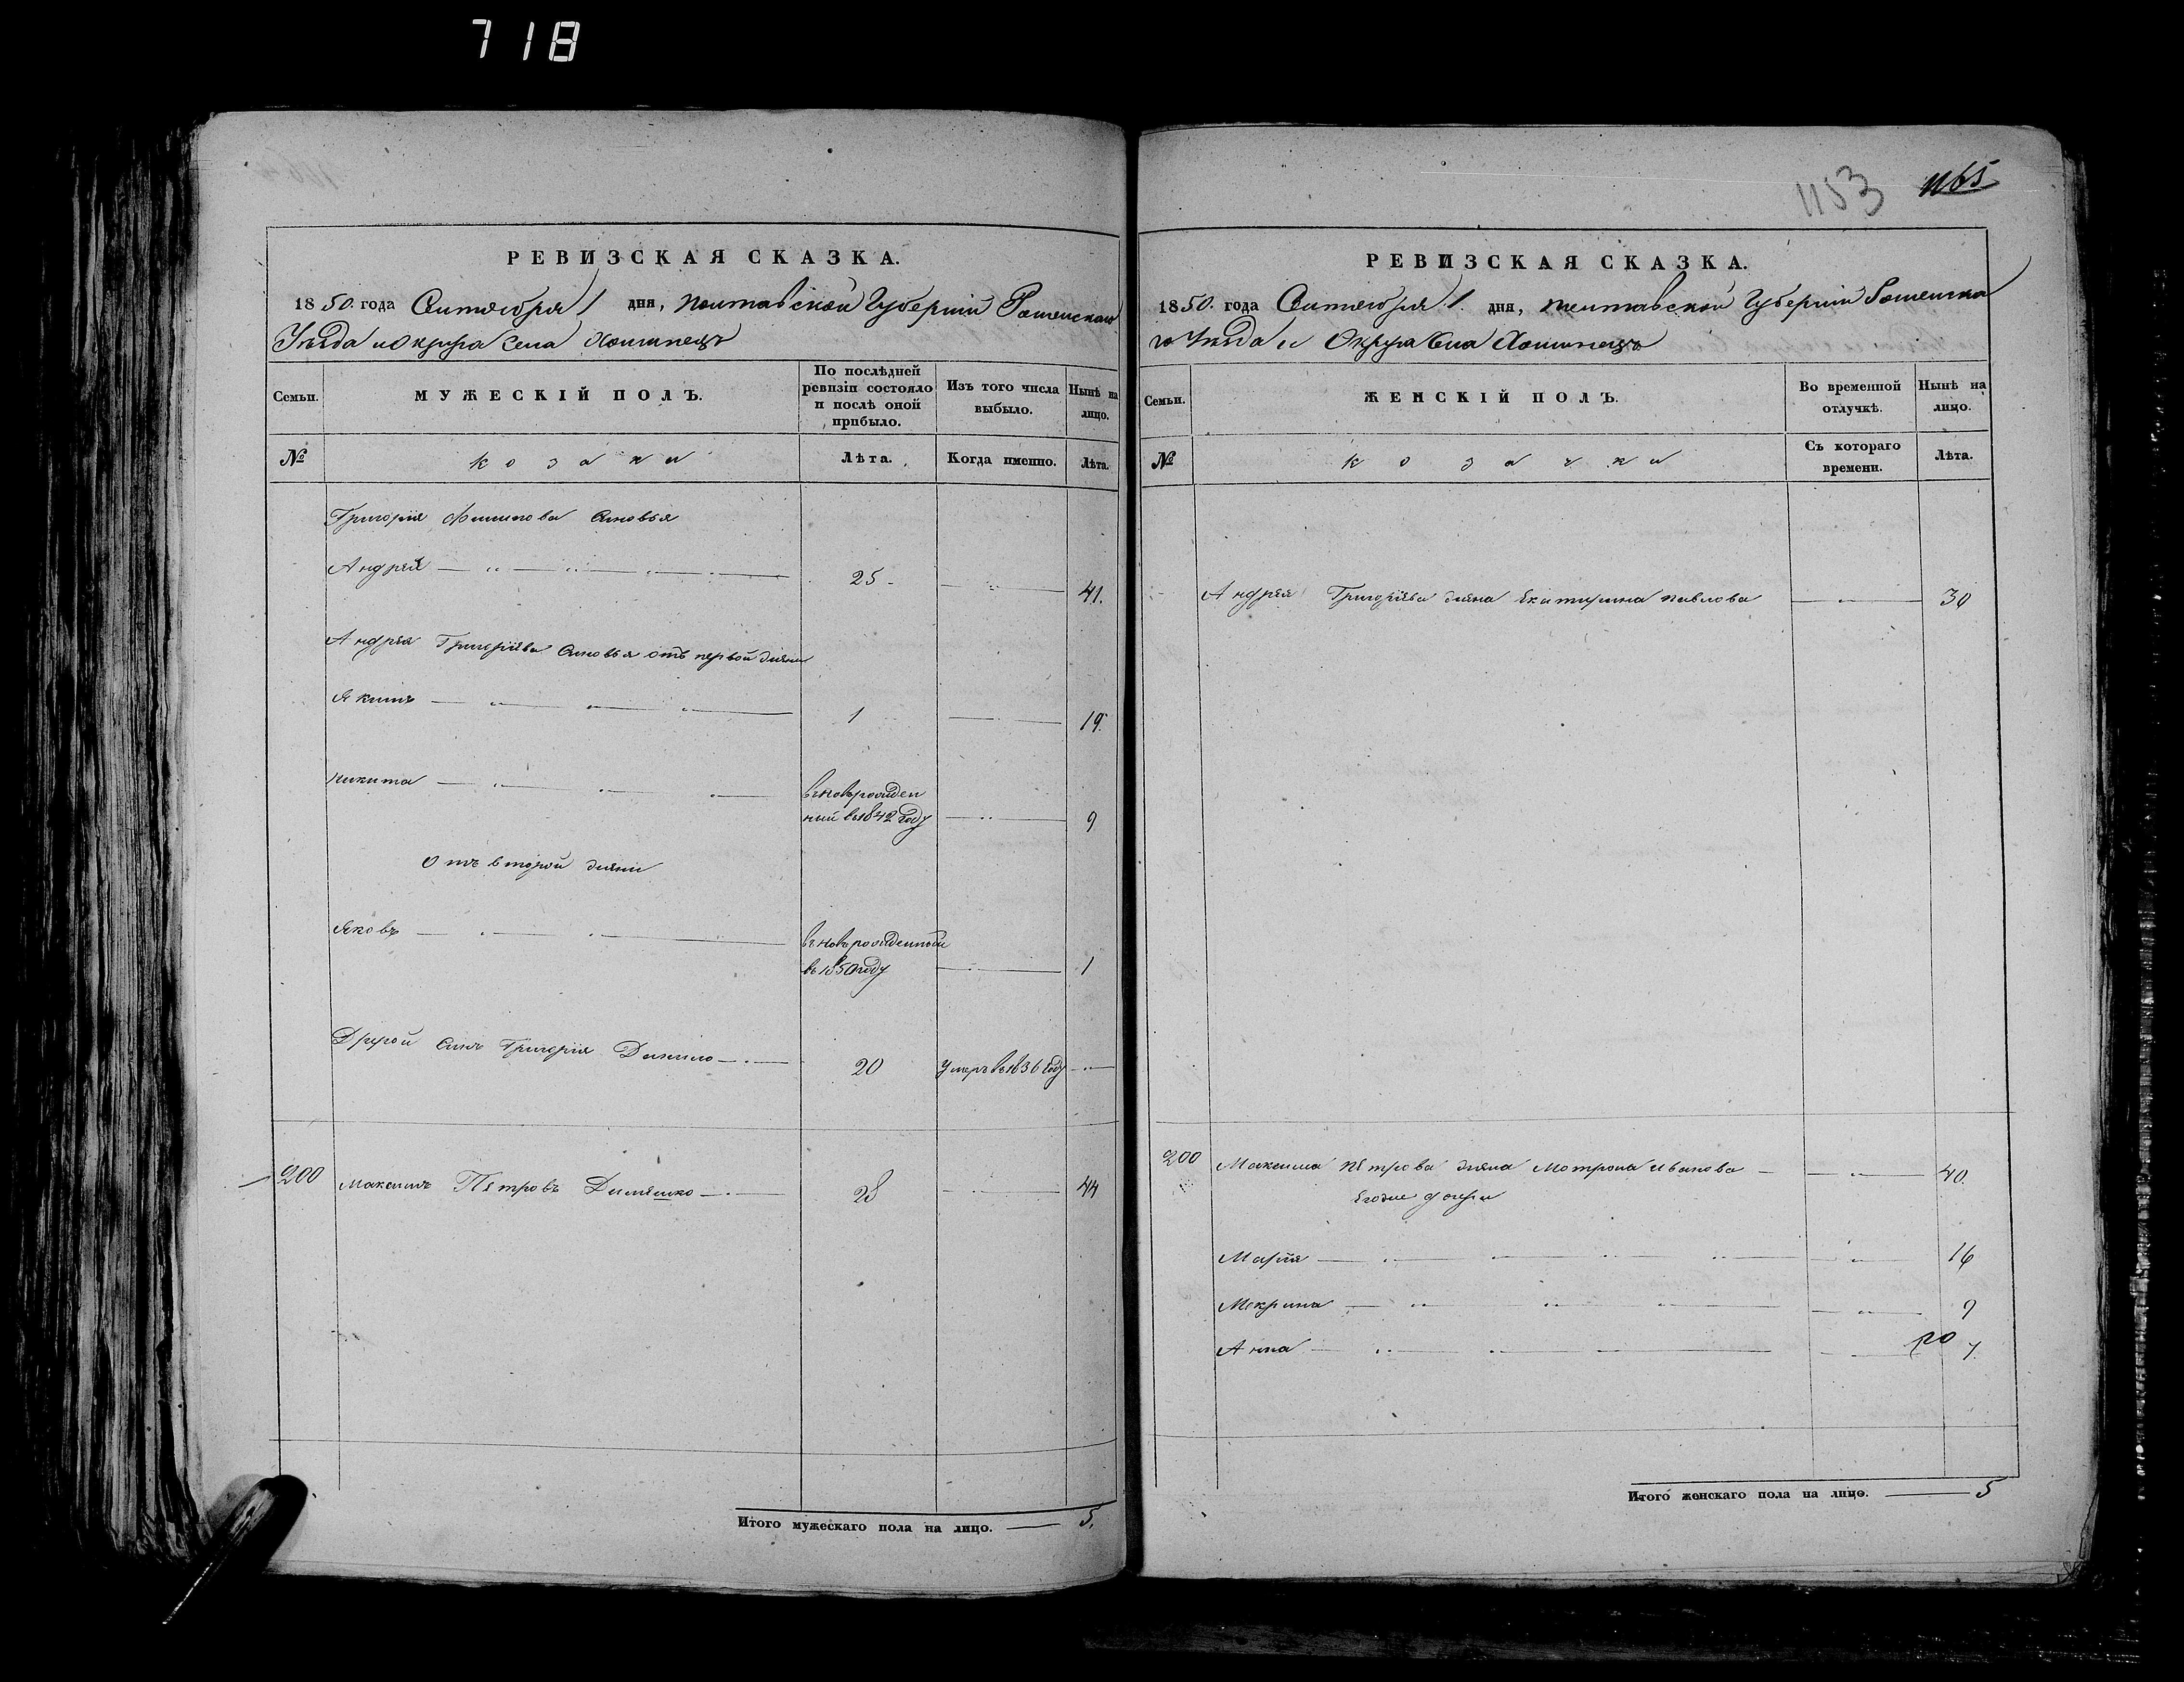 718
1153 1165
РЕВИЗСКАЯ СКАЗКА.
1850. года Сентября 1 дня, Полтавской Губерніи Роменскаго
Уезда и Округа Села Хоминецъ
Семьи.
МУЖЕСКІЙ ПОЛЪ.
По послѣдней
ревизіи состояло
и послѣ оной
прибыло.
Изъ того числа
выбыло.
Нынѣ на
лицо.
№
козаки
Лѣта.
Когда именно.
Лѣта.
Григорія Филипова Сыновья
Андрей 25 41.
Андрея Григоріева Сыновья отъ первой жены
Якимъ 1 19.
Никита вновьрожден
ный въ 1842 году 9
Отъ второй жены
Яковъ вновьрожденный
въ 1850 году 1
Другой Сынъ Григорія Данило 20 Умеръ въ 1836 году
200 Максимъ Петровъ 28 44
Итого мужескаго пола на лицо. 5.
РЕВИЗСКАЯ СКАЗКА.
1850. года Сентября 1. дня, Полтавской Губерніи Роменска
го Уезда и Округа Села Хоминецъ
Семьи.
ЖЕНСКІЙ ПОЛЪ.
Во временной
отлучкѣ.
Нынѣ на
лицо.
№
козачки
Съ котораго
времени.
Лѣта.
Андрея Григоріева жена Екатерина Павлова 30
200 Максима Петрова жена Мотрона Иванова 40.
Егоже дочери
Марія 16
Мокрина 9
Анна 7
Итого женскаго пола на лицо. 5